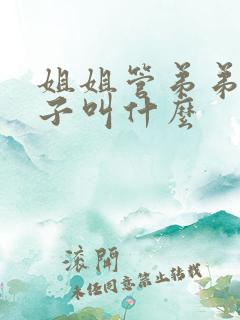 姐姐管弟弟
子叫什麼
滚開
未任同意禁止转载